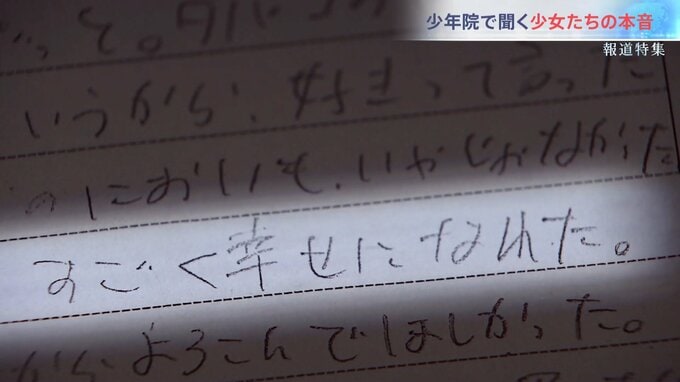 少年院で聞く少女たちの本音
報道特集
いうから、好きってるった
のにおいも、いやじゃなかった
すごく幸せになれた。
からよろこんでほしかった。